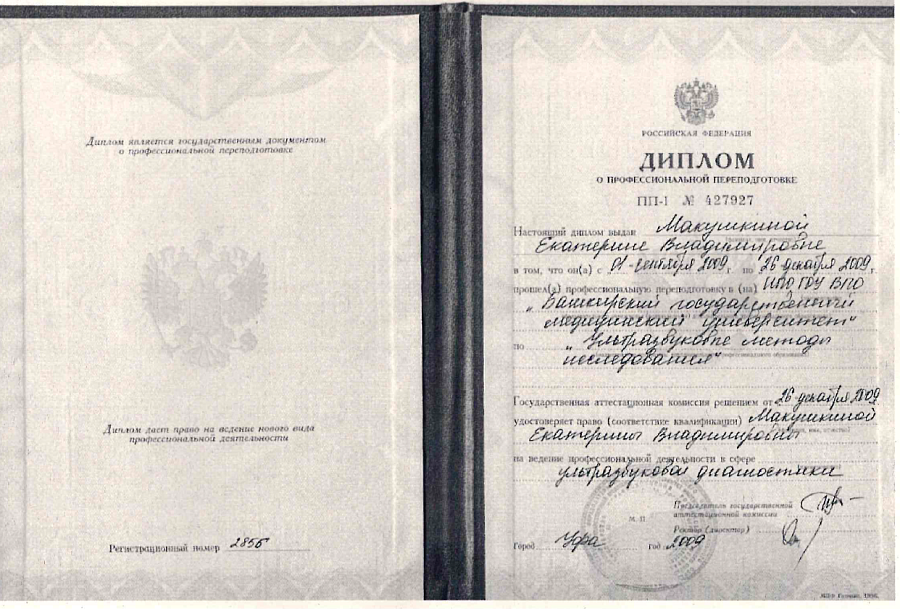 Диплом является государственным документом
о профессиональной переподготовке
Диплом дает право на ведение нового вида
профессиональной деятельности
Регистрационный номер 2856
РОССИЙСКАЯ ФЕДЕРАЦИЯ
ДИПЛОМ
О ПРОФЕССИОНАЛЬНОЙ ПЕРЕПОДГОТОВКЕ
ПП-I № 427927
Настоящий диплом выдан Макушкиной
Екатерине Владимировне
в том, что он(а) с 01 сентября 2009 г. по 26 декабря 2009 г.
прошел(а) профессиональную переподготовку в (на) ИПО ГОУ ВПО
„Башкирский государственный
медицинский университет"
по „Ультразвуковые методы
исследования"
Государственная аттестационная комиссия решением от 26 декабря 2009
удостоверяет право (соответствие квалификации) Макушкиной
Екатерины Владимировны
на ведение профессиональной деятельности в сфере
ультразвуковой диагностики
Председатель государственной
аттестационной комиссии
М. П.
Ректор (директор)
Город Уфа год 2009